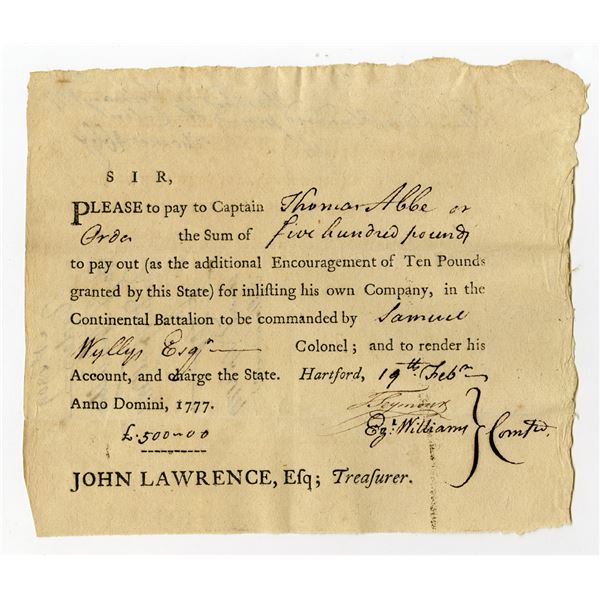 SIR,
PLEASE to pay to Captain Thomas Abbe or
Order the Sum of five hundred pounds
to pay out (as the additional Encouragement of Ten Pounds
granted by this State) for inlisting his own Company, in the
Continental Battalion to be commanded by Samuel
Wyllys Esqr Colonel; and to render his
Account, and charge the State. Hartford, 19th Febr
Anno Domini, 1777. T Seymour
£.500-0-0 Ez. Williams } Comtee
JOHN LAWRENCE, Esq; Treasurer.